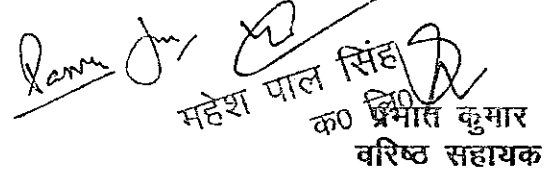 महेश पाल सिंह
क० लि०
प्रभात कुमार
वरिष्ठ सहायक